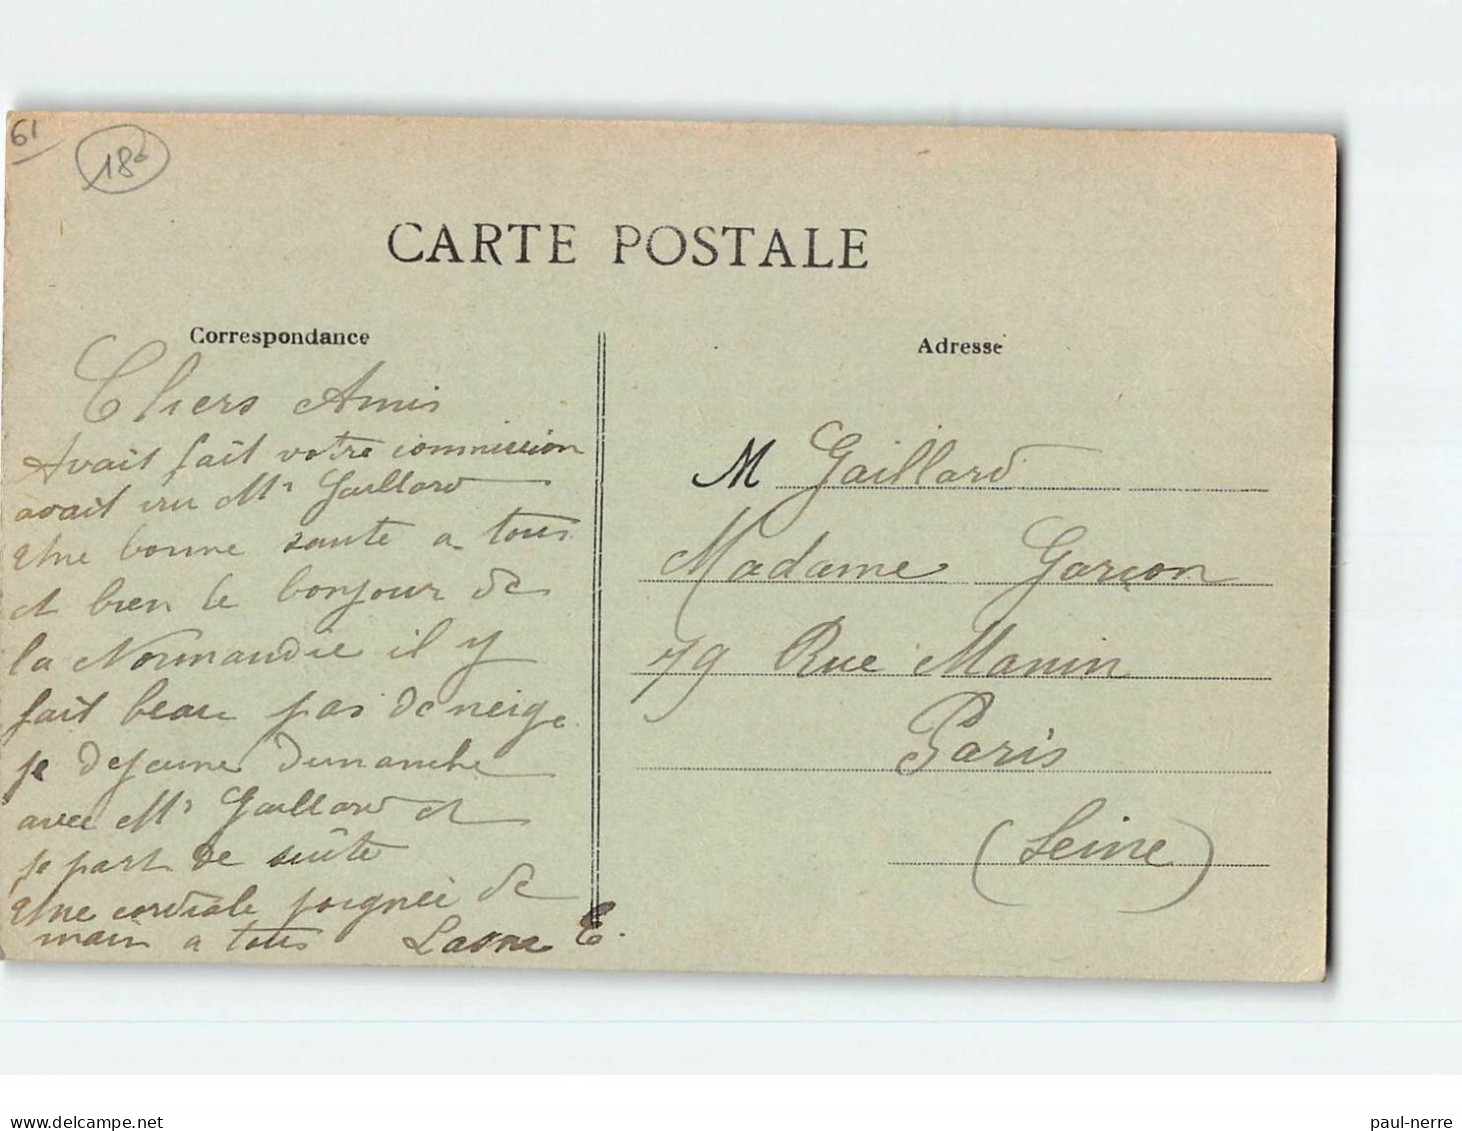 61
18€
CARTE POSTALE
Correspondance
Chers Amis
Avait fait votre commission
avait vu Mr Gaillard
Une bonne sante a tous
et bien le bonjour de
la Normandie il y
fait beau pas de neige
je dejeune Dimanche
avec Mr Gaillard et
je part de suite
Une cordiale poignée de
main a tous E.
Adresse
M Gaillard
Madame Garçon
79 Rue Manin
Paris
(Seine)
delcampe.net
paul-nerre